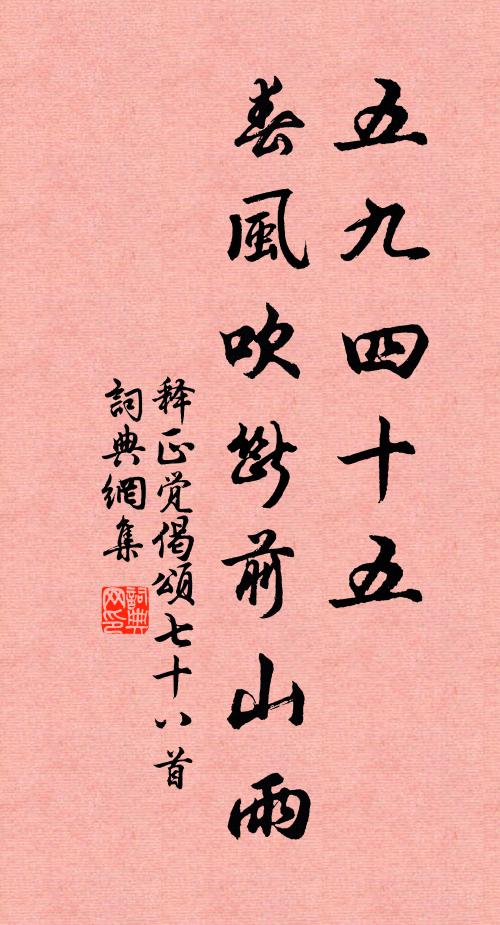 五九四十五
春風吹斷前山雨
释正觉偈頌七十八首
詞典網集
詞典网印